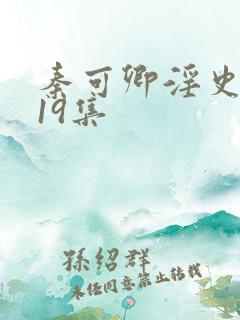 秦可卿淫史
19集
孫绍群
未经同意禁止转载